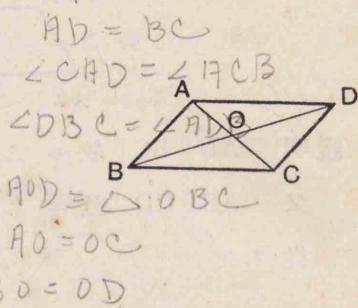 AD = BC
∠CAD = ∠ACB
A
D
∠DBC = ∠ADB
O
B
C
AOD ≡ △ OBC
AO = OC
BO = OD